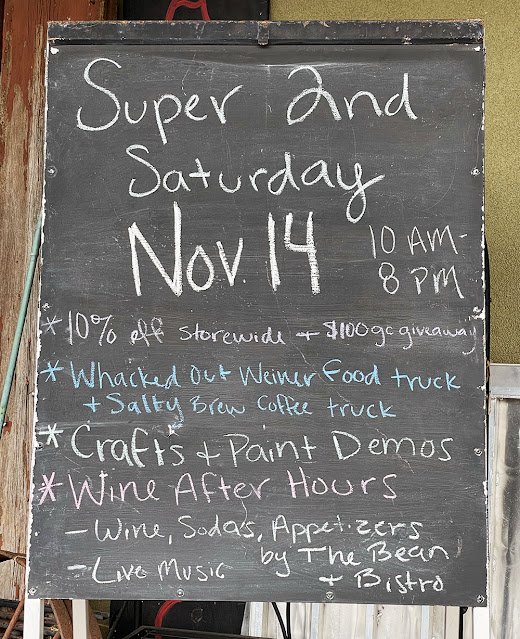 Super 2nd
Saturday
Nov. 14
10 AM-
8 PM
* 10% off storewide + $100 gc giveaway
* Whacked Out Weiner Food truck
+ Salty Brew Coffee truck
* Crafts + Paint Demos
* Wine After Hours
- Wine, Sodas, Appetizers
by The Bean
+ Bistro
- Live Music